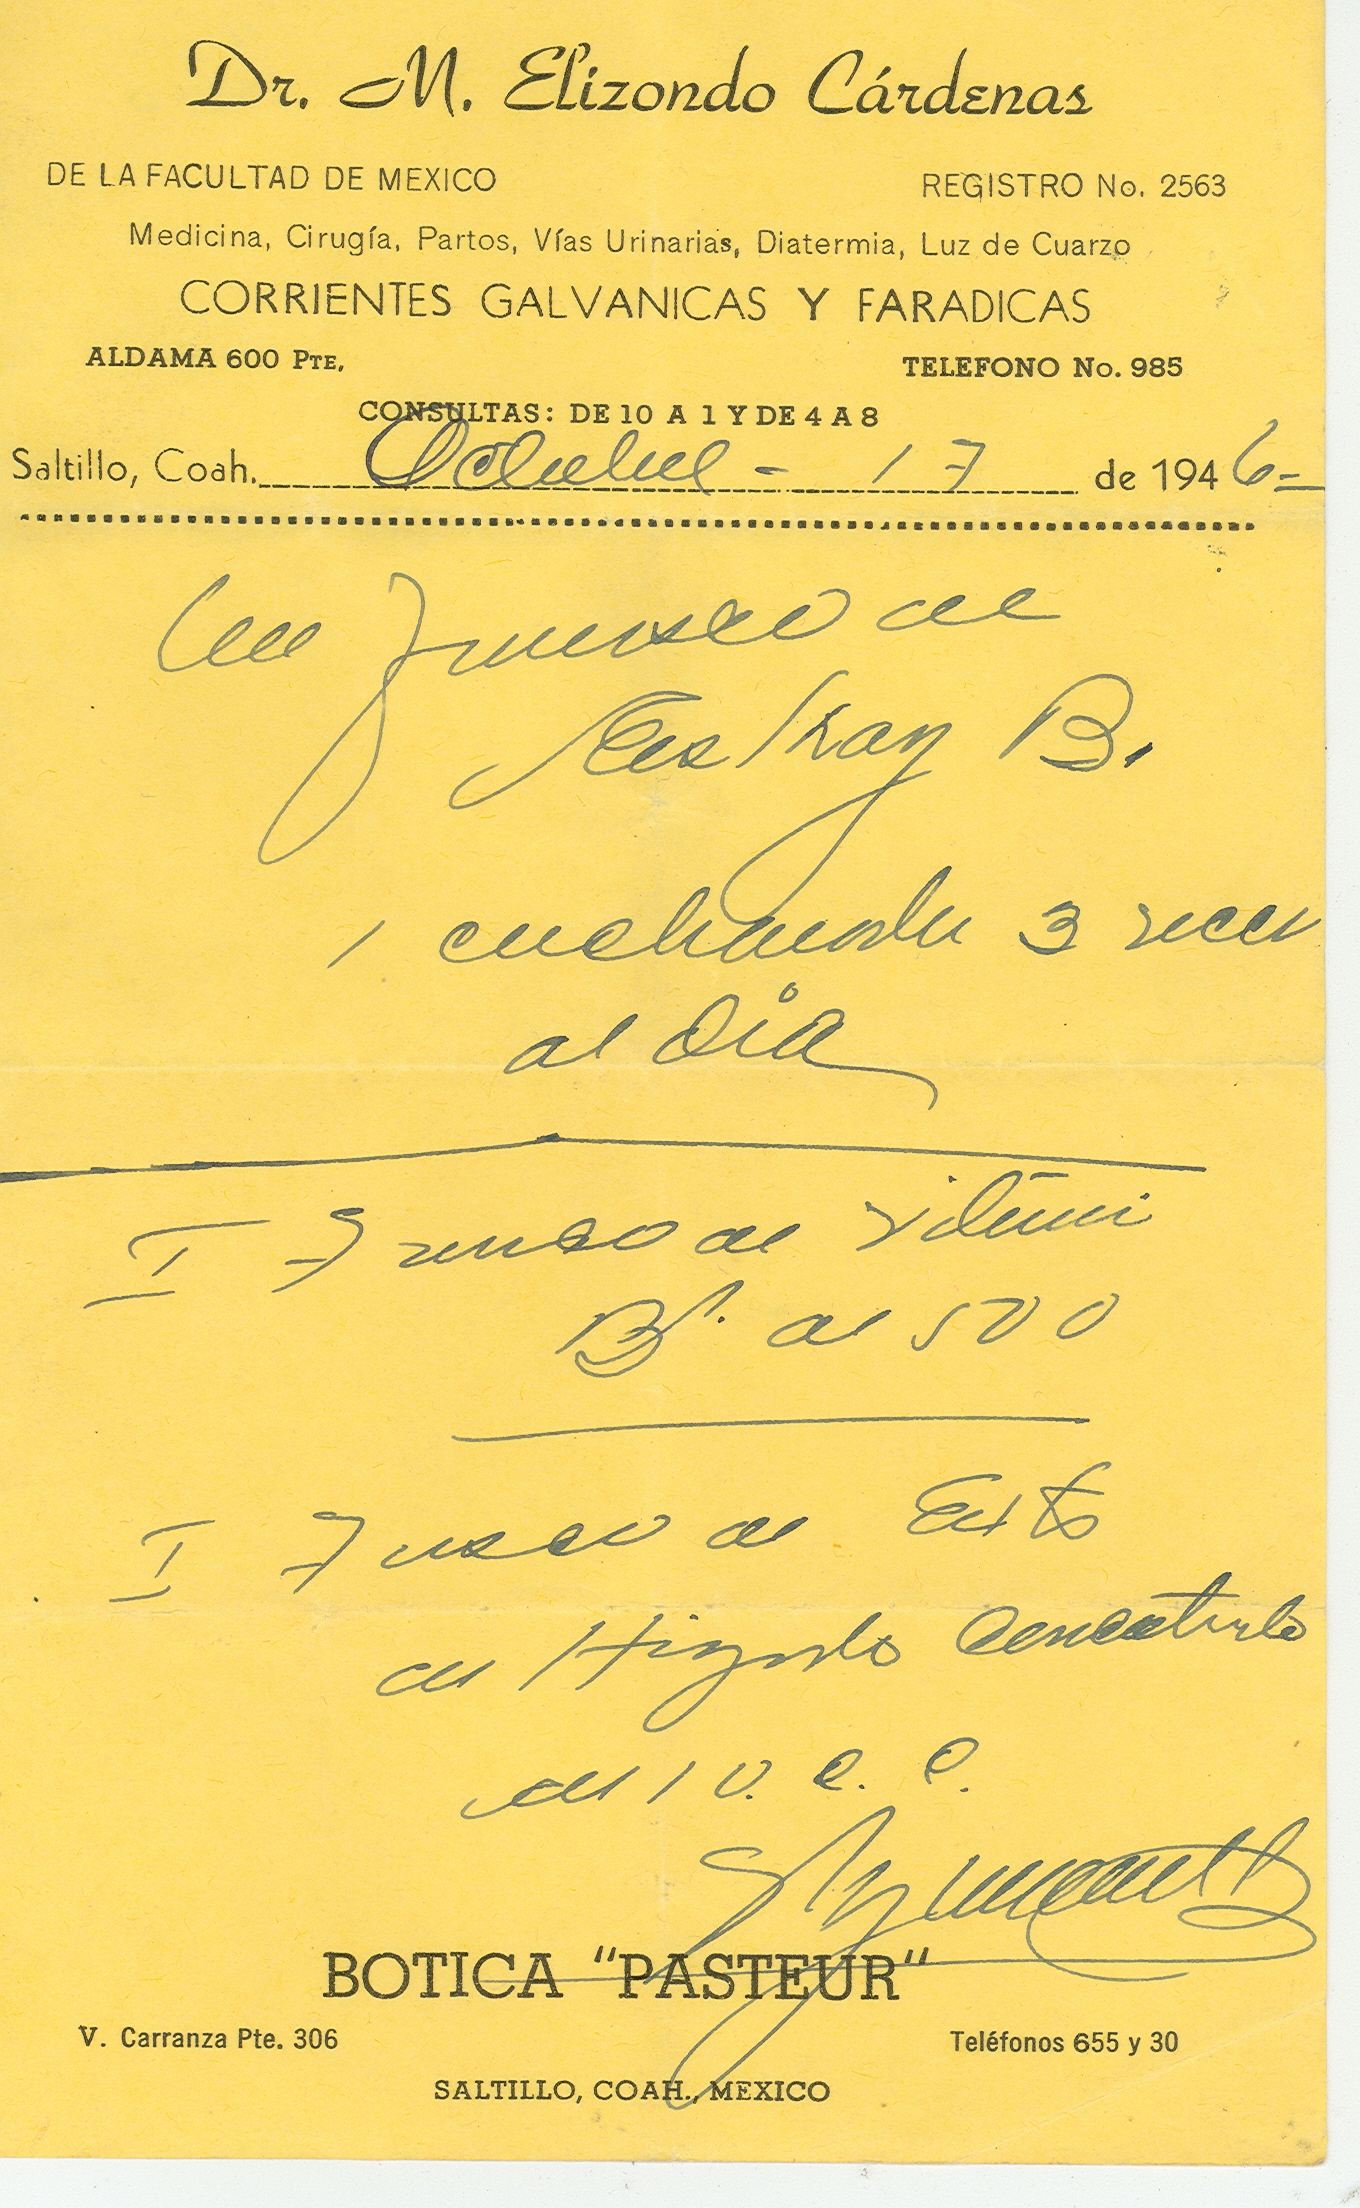 Dr. M. Elizondo Cárdenas
DE LA FACULTAD DE MEXICO REGISTRO No. 2563
Medicina, Cirugía, Partos, Vías Urinarias, Diatermia, Luz de Cuarzo
CORRIENTES GALVANICAS Y FARADICAS
ALDAMA 600 PTE. TELEFONO No. 985
CONSULTAS: DE 10 A 1 Y DE 4 A 8
Saltillo, Coah. Octubre - 17 de 1946=
Un frasco de
B.
1 cucharada 3 veces
al día
I Frasco de
B1. de 500
I Frasco de Exto
de Higado Concentrado
de 10. c. c.
BOTICA "PASTEUR"
V. Carranza Pte. 306 Teléfonos 655 y 30
SALTILLO, COAH., MEXICO